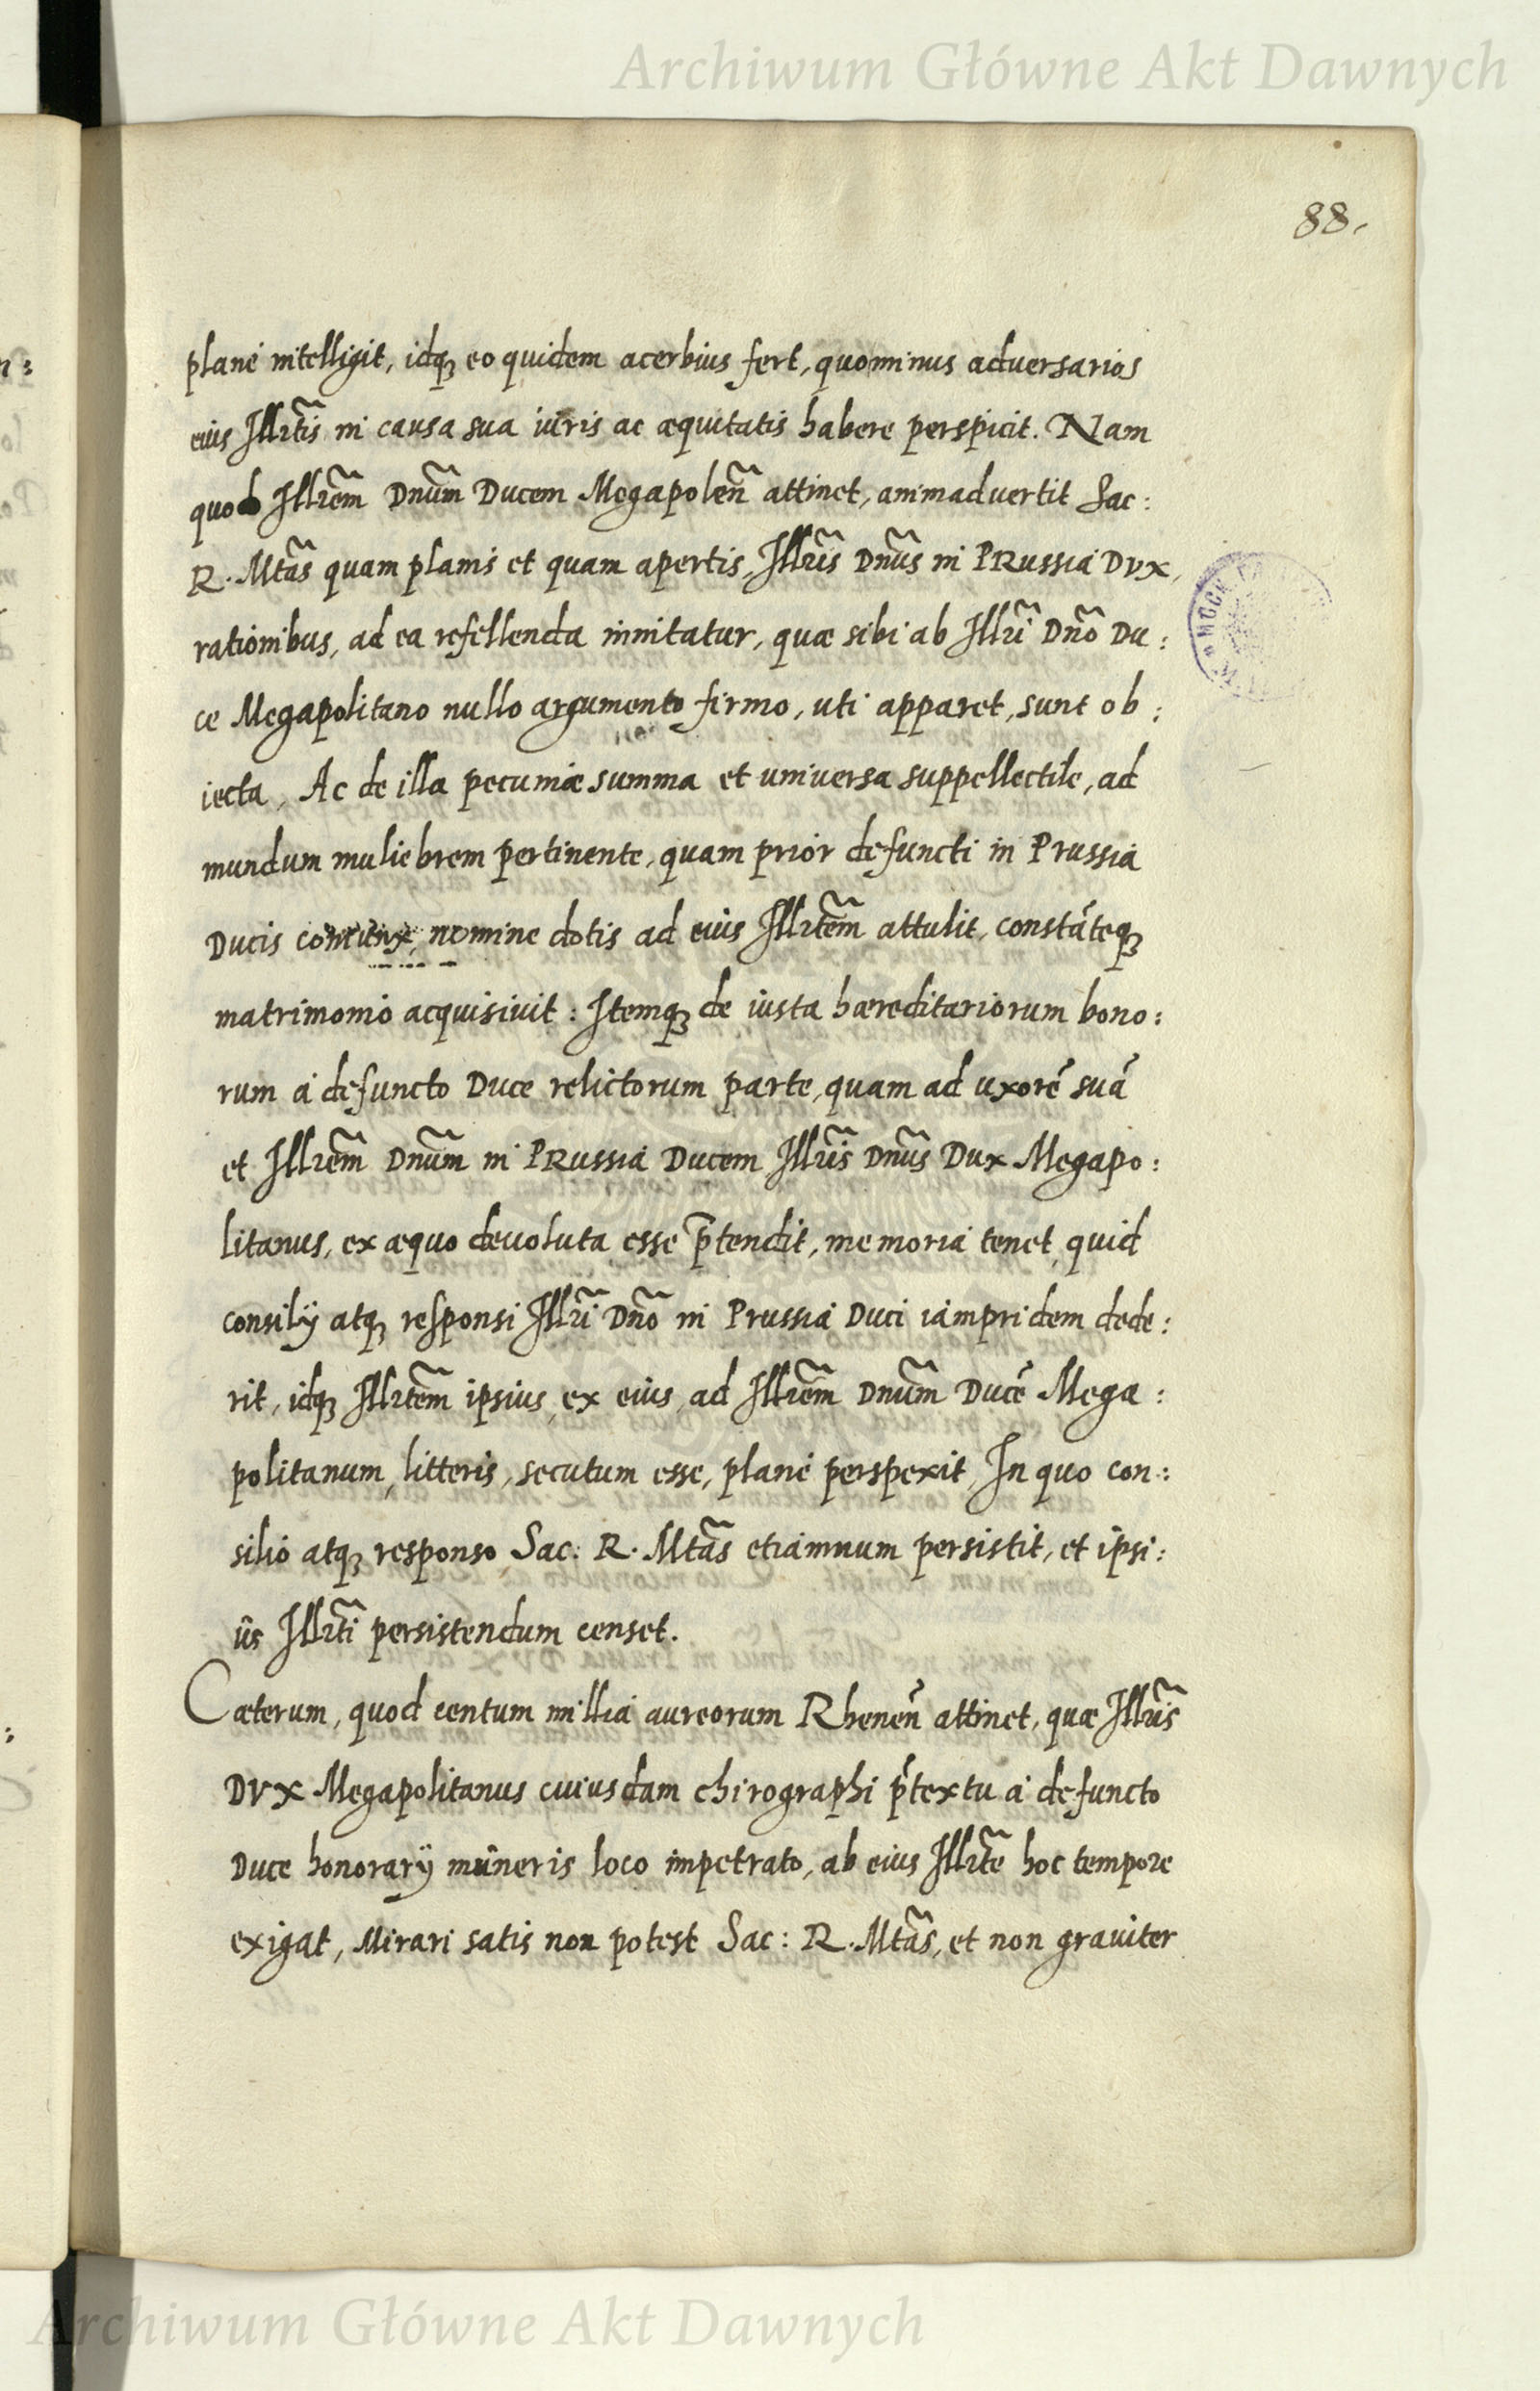 Archiwum Główne Akt Dawnych
88.
planè intelligit, idqꝫ eo quidem acerbius fert, quominus adversarios
eius Illrtis̃ in causa sua iuris ac æquitatis habere perspicit. Nam
quod Illrem̃ Dnum̃ Ducem Megapoleñ attinet, animadvertit Sac:
R. Mtas̃ quam planis et quam apertis, Illris̃ Dnus̃ in PRussia DVX,
rationibus, ad ea refellenda innitatur, quæ sibi ab Illrĩ Dnõ Du:
ce Megapolitano nullo argumento firmo, uti apparet, sunt ob:
iecta, Ac de illa pecuniæ summa et universa suppellectile, ad
mundum muliebrem pertinente, quam prior defuncti in Prussia
Ducis coniunx, nomine dotis ad eius Illrtem̃ attulit, constãteqꝫ
matrimonio acquisivit: Itemqꝫ de iusta hæreditariorum bono:
rum à defuncto Duce relictorum parte, quam ad uxorẽ suã
et Illrem̃ Dnum̃ in PRussia Ducem Illris̃ Dnus̃ Dux Megapo:
litanus, ex æquo devoluta esse p̃tendit, memoria tenet, quid
consilÿ atqꝫ responsi Illrĩ Dnõ in Prussia Duci iampridem dede:
rit, idqꝫ Illrtem̃ ipsius, ex eius, ad Illrem̃ Dnum̃ Ducẽ Mega:
politanum, litteris, secutum esse, planè perspexit, In quo con:
silio atqꝫ responso Sac: R. Mtas̃ etiamnum persistit, et ipsi:
us Illrtĩ persistendum censet.
Cæterum, quod centum millia aureorum Rheneñ attinet, quæ Illris̃
DVX Megapolitanus cuiusdam chirographi p̃textu à defuncto
Duce honorarÿ muneris loco impetrato, ab eius Illrte̊ hoc tempore
exigat, Mirari satis non potest Sac: R. Mtas̃, et non graviter
Archiwum Główne Akt Dawnych